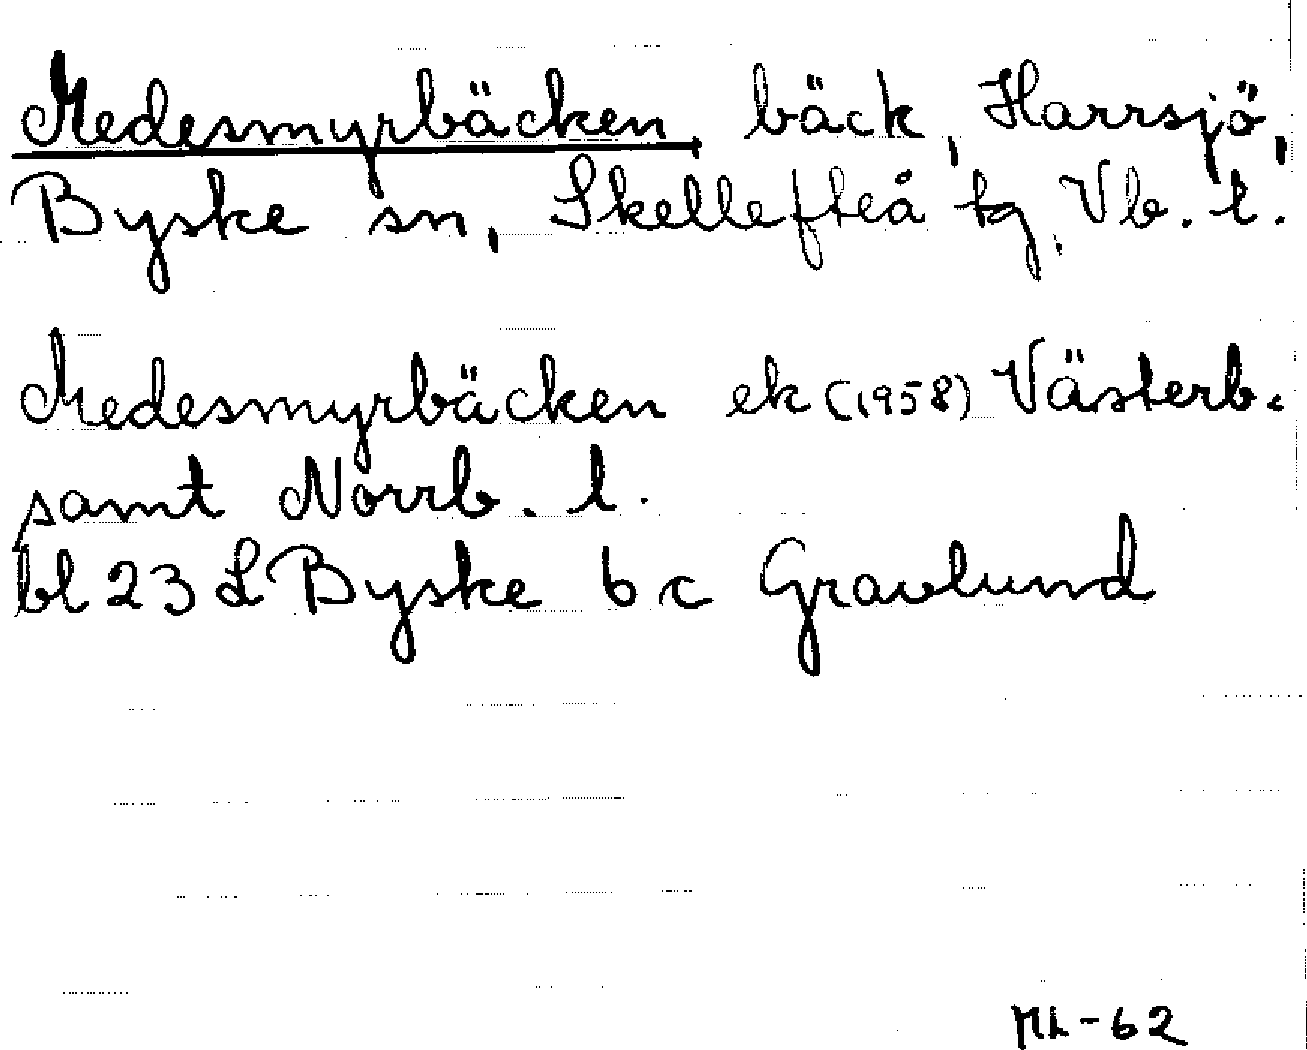 Medesmyrbäcken, bäck, Harrsjö,
Byske sn, Skellefteå tg, Vb. l.
Medesmyrbäcken ek (1958) Västerb.
samt Norrb. l.
bl 23 L Byske 6 c Gravlund
ML-62